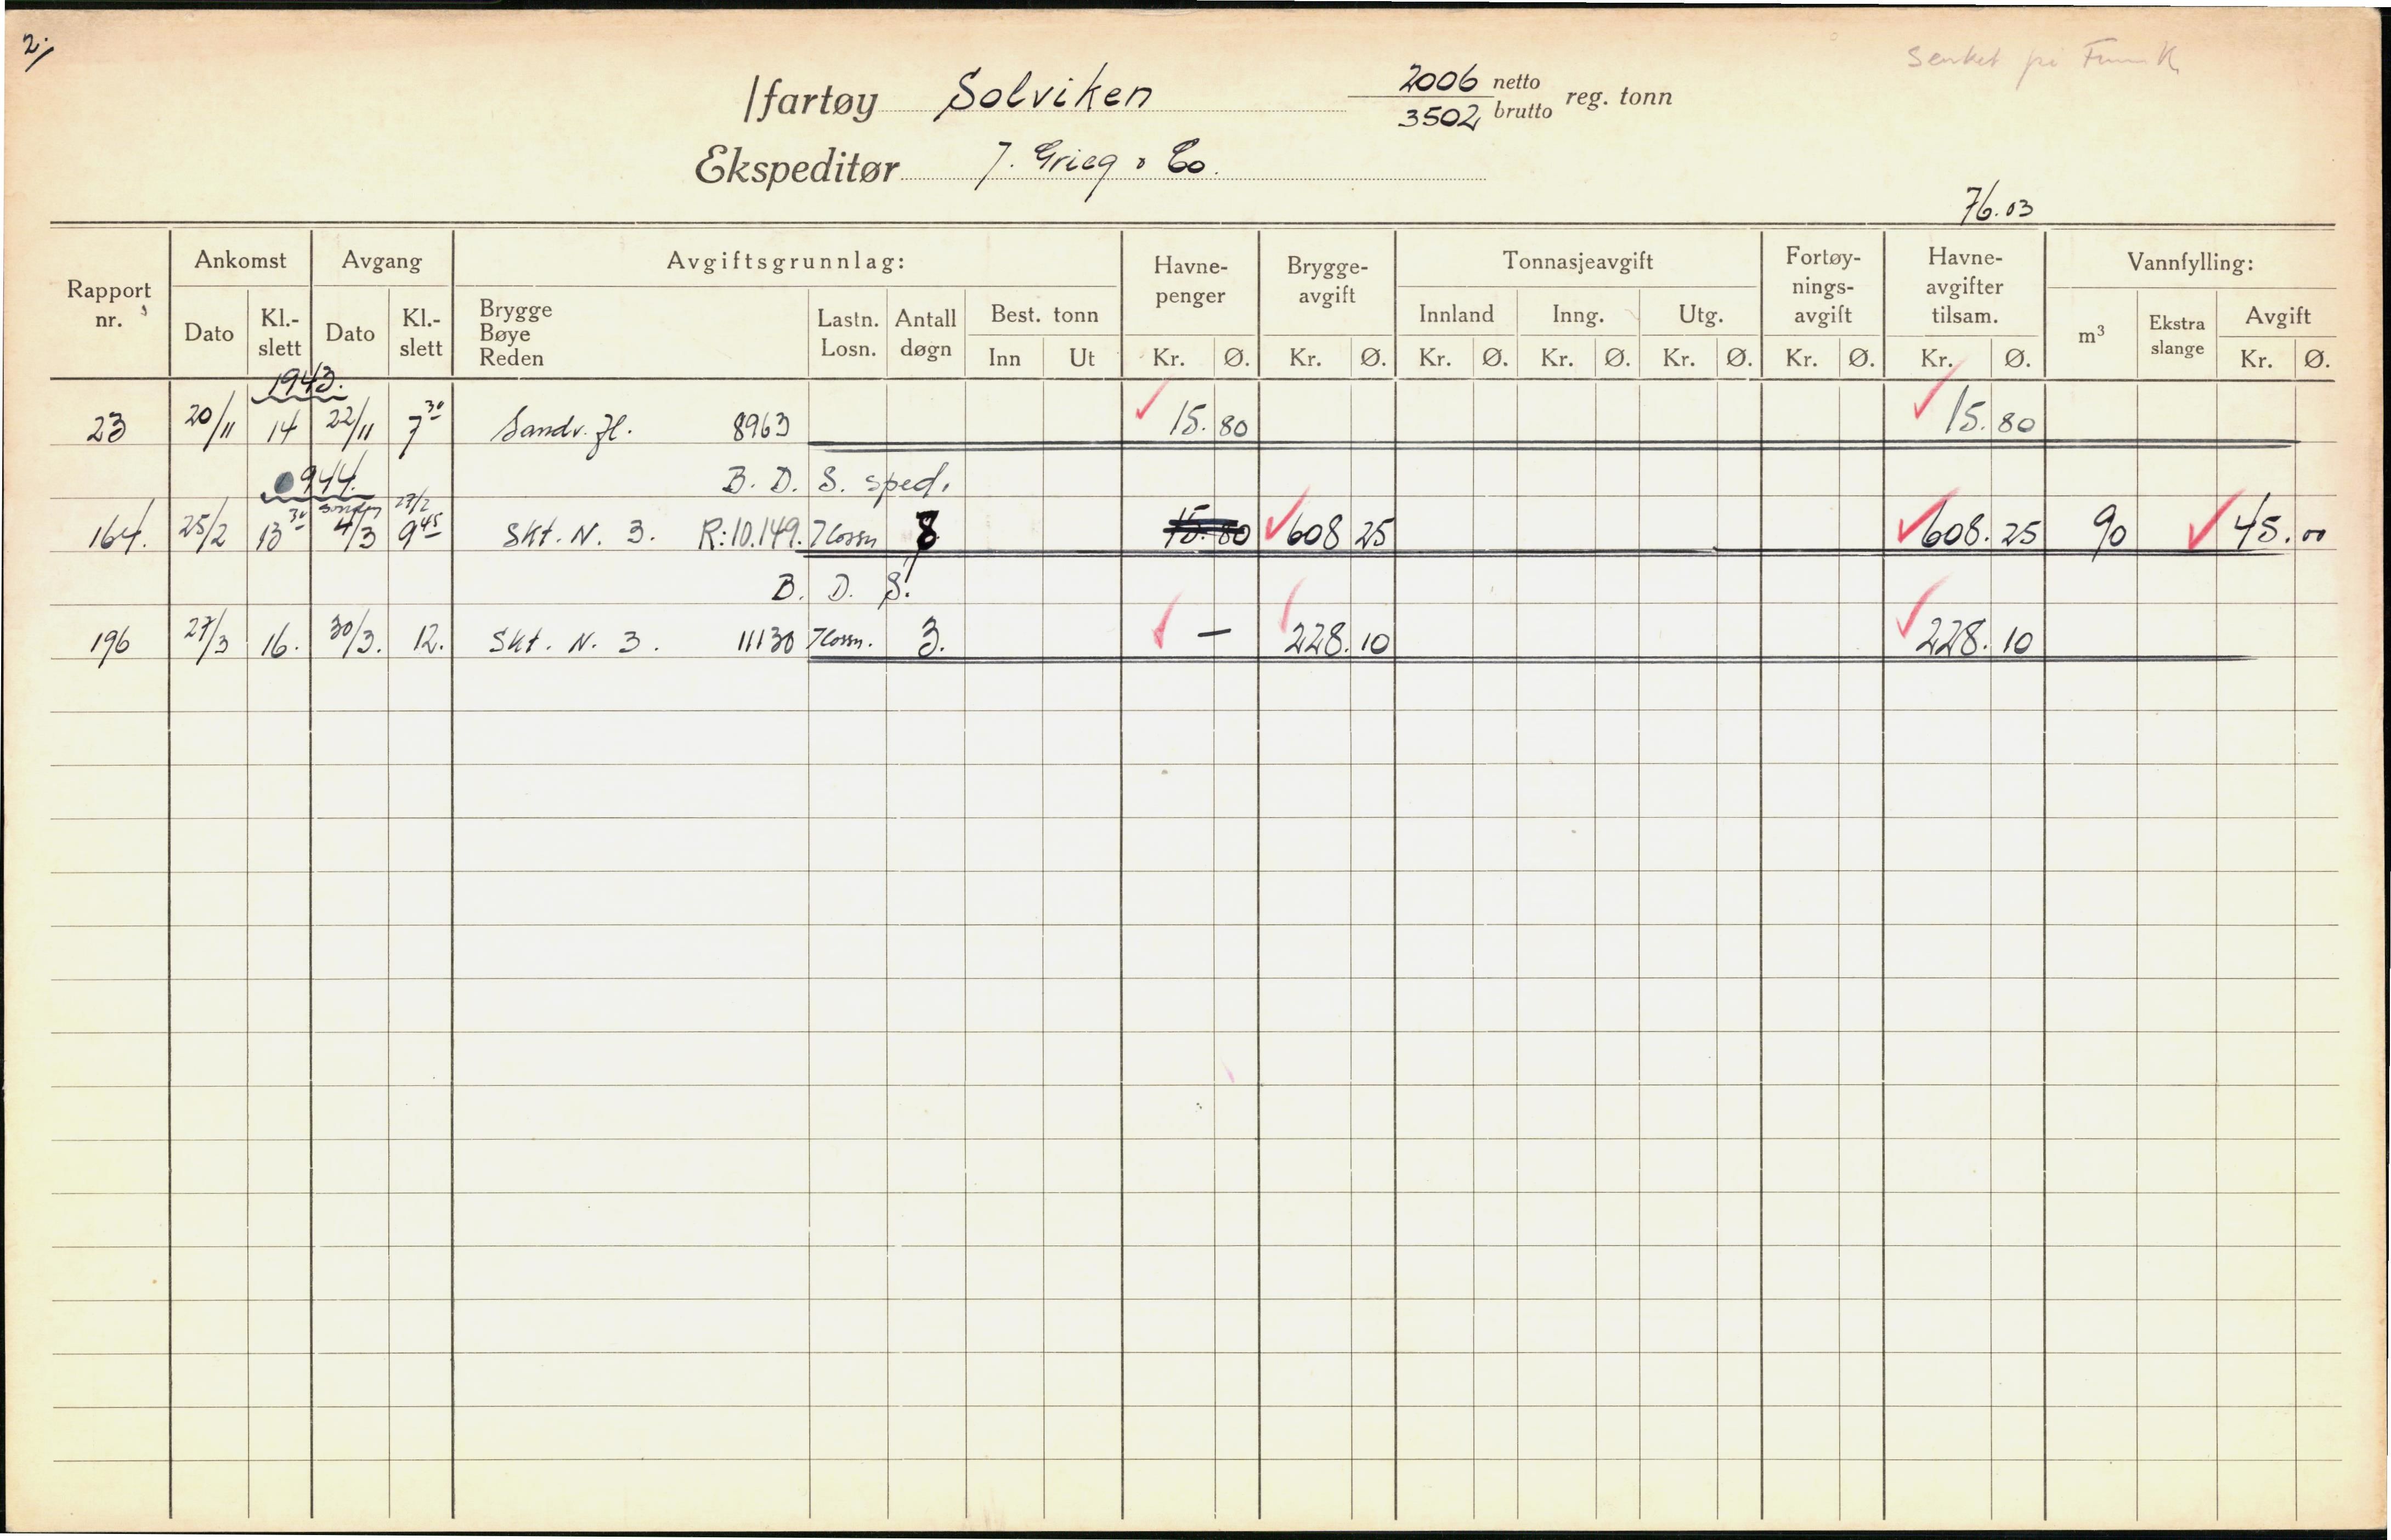 2./
Senket på
/fartøy Solviken 2006 netto 3502 brutto reg. tonn
Ekspeditør J. Grieg & Co.
76.03
Rapport nr. Ankomst Avgang Avgiftsgrunnlag: Havne-penger Brygge-avgift Tonnasjeavgift Fortøy-nings-avgift Havne-avgifter tilsam. Vannfylling:
Dato Kl.-slett Dato Kl.-slett Brygge Bøye Reden Lastn. Losn. Antall døgn Best. tonn Innland Inng. Utg. m3 Ekstra slange Avgift
Inn Ut Kr. Ø. Kr. Ø. Kr. Ø. Kr. Ø. Kr. Ø. Kr. Ø. Kr. Ø. Kr. Ø.
1943.
23 20/11 14 22/11 7 30 Sandv. fl. 8963 15.80 15.80
944. B. D. S. sped.
27/2
164. 25/2 13 30 4/3 9 45 Skt. N. 3. R: 10.149. Lossn 8 15.80 608 25 608.25 90 45.00
B. D. S.
196 27/3 16. 30/3. 12. Skt. N. 3. 11130 Lossn. 3. — 228.10 228.10